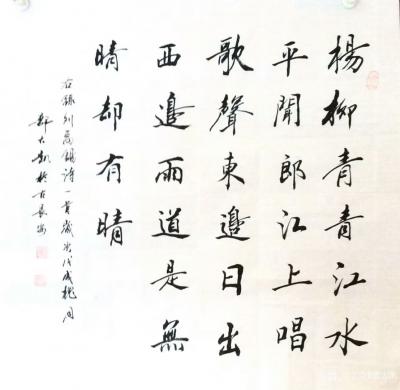 楊柳青青江水
平聞郎江上唱
歌聲東邊日出
西邊雨道是無
晴却有晴
右錄刘禹錫诗一首歲次戊戌槐月
於古長安